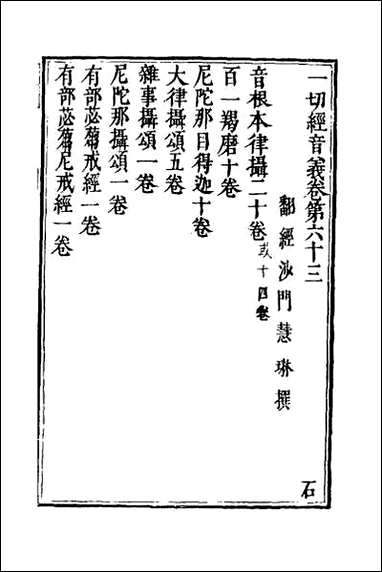 一切經音義卷第六十三
翻經沙門慧琳撰
音根本律攝二十卷或十四卷
百一羯磨十卷
尼陀那目得迦十卷
大律攝頌五卷
雜事攝頌一卷
尼陀那攝頌一卷
有部苾蒭戒經一卷
有部苾蒭尼戒經一卷
石